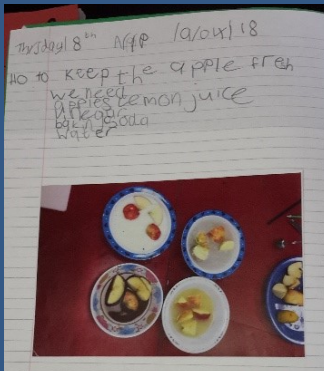 Thrsday 8th N&P 19/04/18
Ho to keep the apple fresh
we need
apples lemon juice
vinegar
bakin soda
water